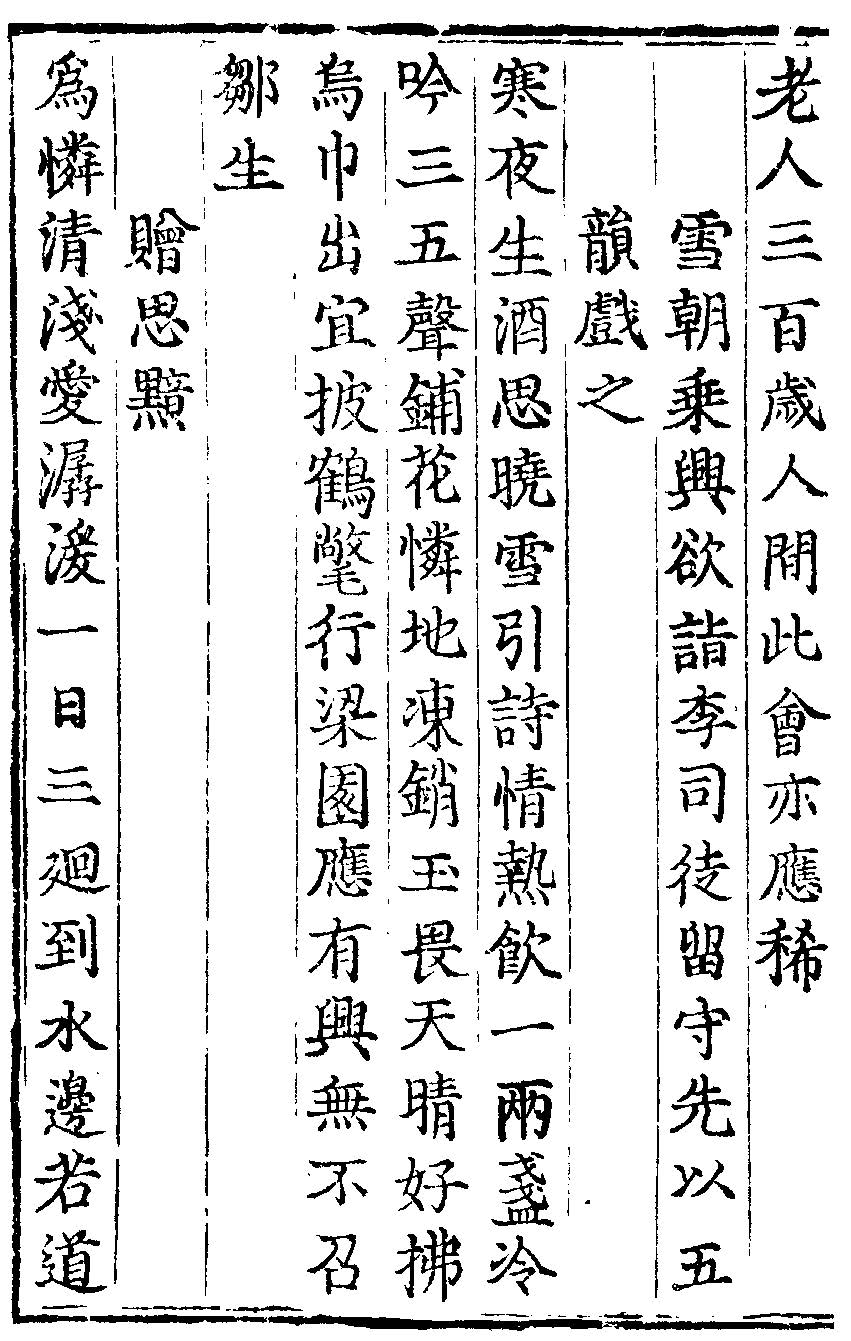 老人三百歳人間此會亦應稀
雪朝乗興欲詣李司徒留守先以五
韻戲之
寒夜生酒思曉雪引詩情熱飲一兩盞冷
吟三五聲鋪花憐地凍銷玉畏天晴好拂
烏巾出宜披鶴氅行梁園應有興無不召
鄒生
贈思黯
爲憐清淺愛潺湲一日三廻到水邊若道